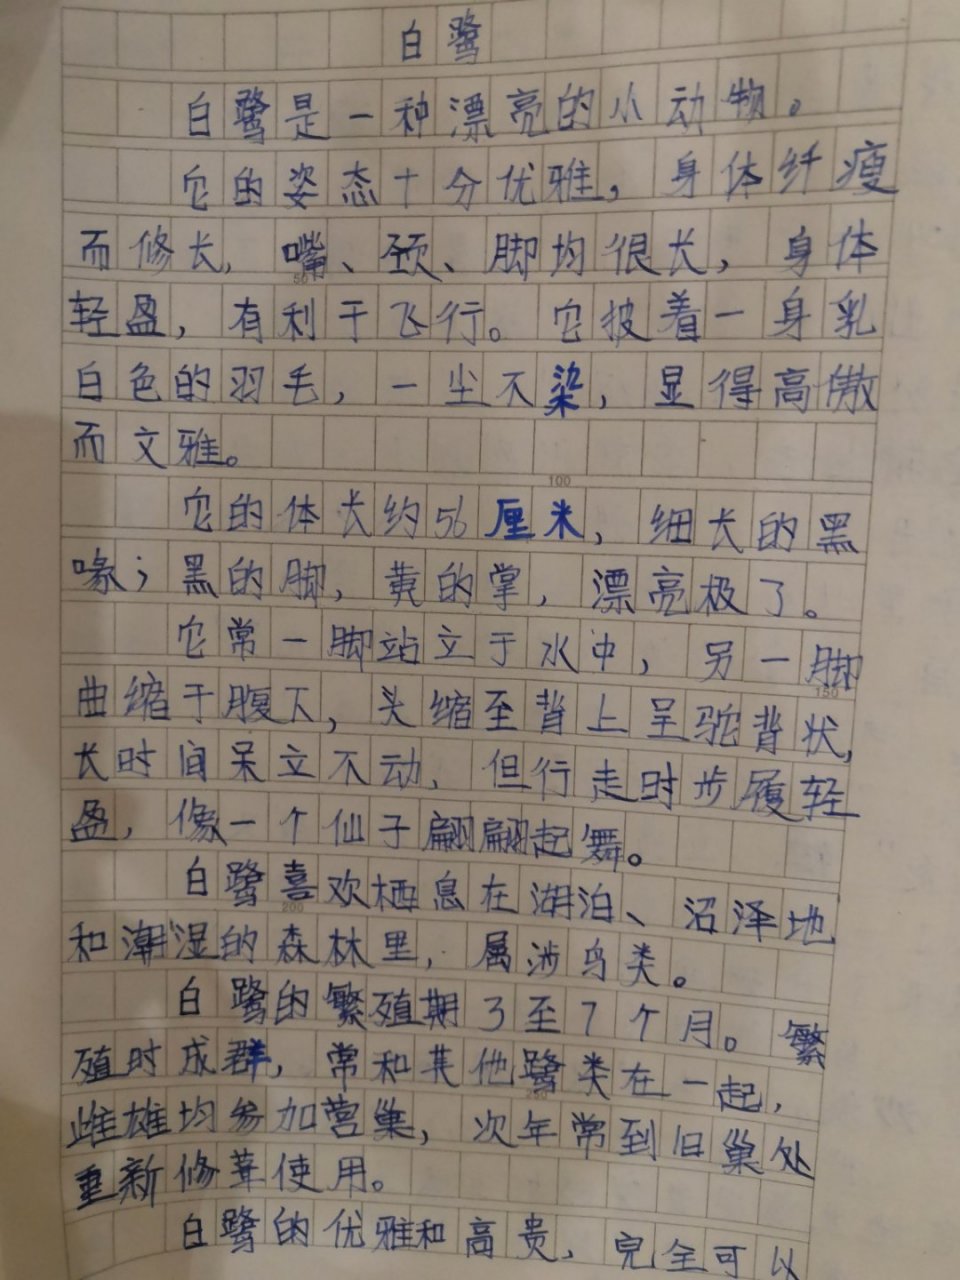 白鹭
白鹭是一种漂亮的小动物。
它的姿态十分优雅，身体纤瘦
而修长，嘴、颈、脚均很长，身体
轻盈，有利于飞行。它披着一身乳
白色的羽毛，一尘不染，显得高傲
而文雅。
100
它的体长约56厘米，细长的黑
喙；黑的脚，黄的掌，漂亮极了。
它常一脚站立于水中，另一脚
150
曲缩于腹下，头缩至背上呈驼背状，
长时间呆立不动，但行走时步履轻
盈，像一个仙子翩翩起舞。
白鹭喜欢栖息在湖泊、沼泽地
200
和潮湿的森林里，属涉鸟类。
白鹭的繁殖期3至7个月。繁
殖时成群，常和其他鹭类在一起，
250
雌雄均参加营巢，次年常到旧巢处
重新修葺使用。
白鹭的优雅和高贵，完全可以